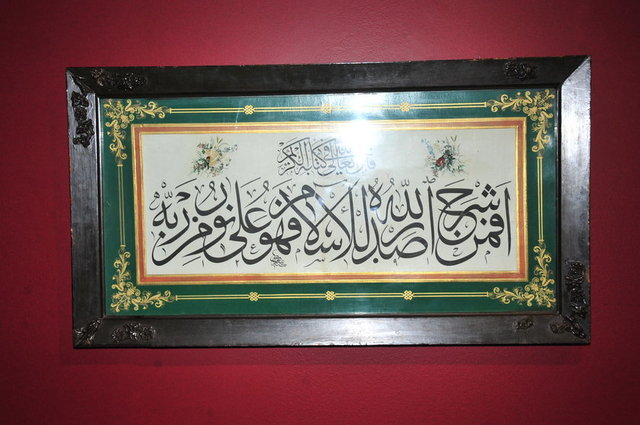 قال الله تعالى في كتابه الكريم
افمن شرح الله صدره للاسلام فهو على نور من ربه